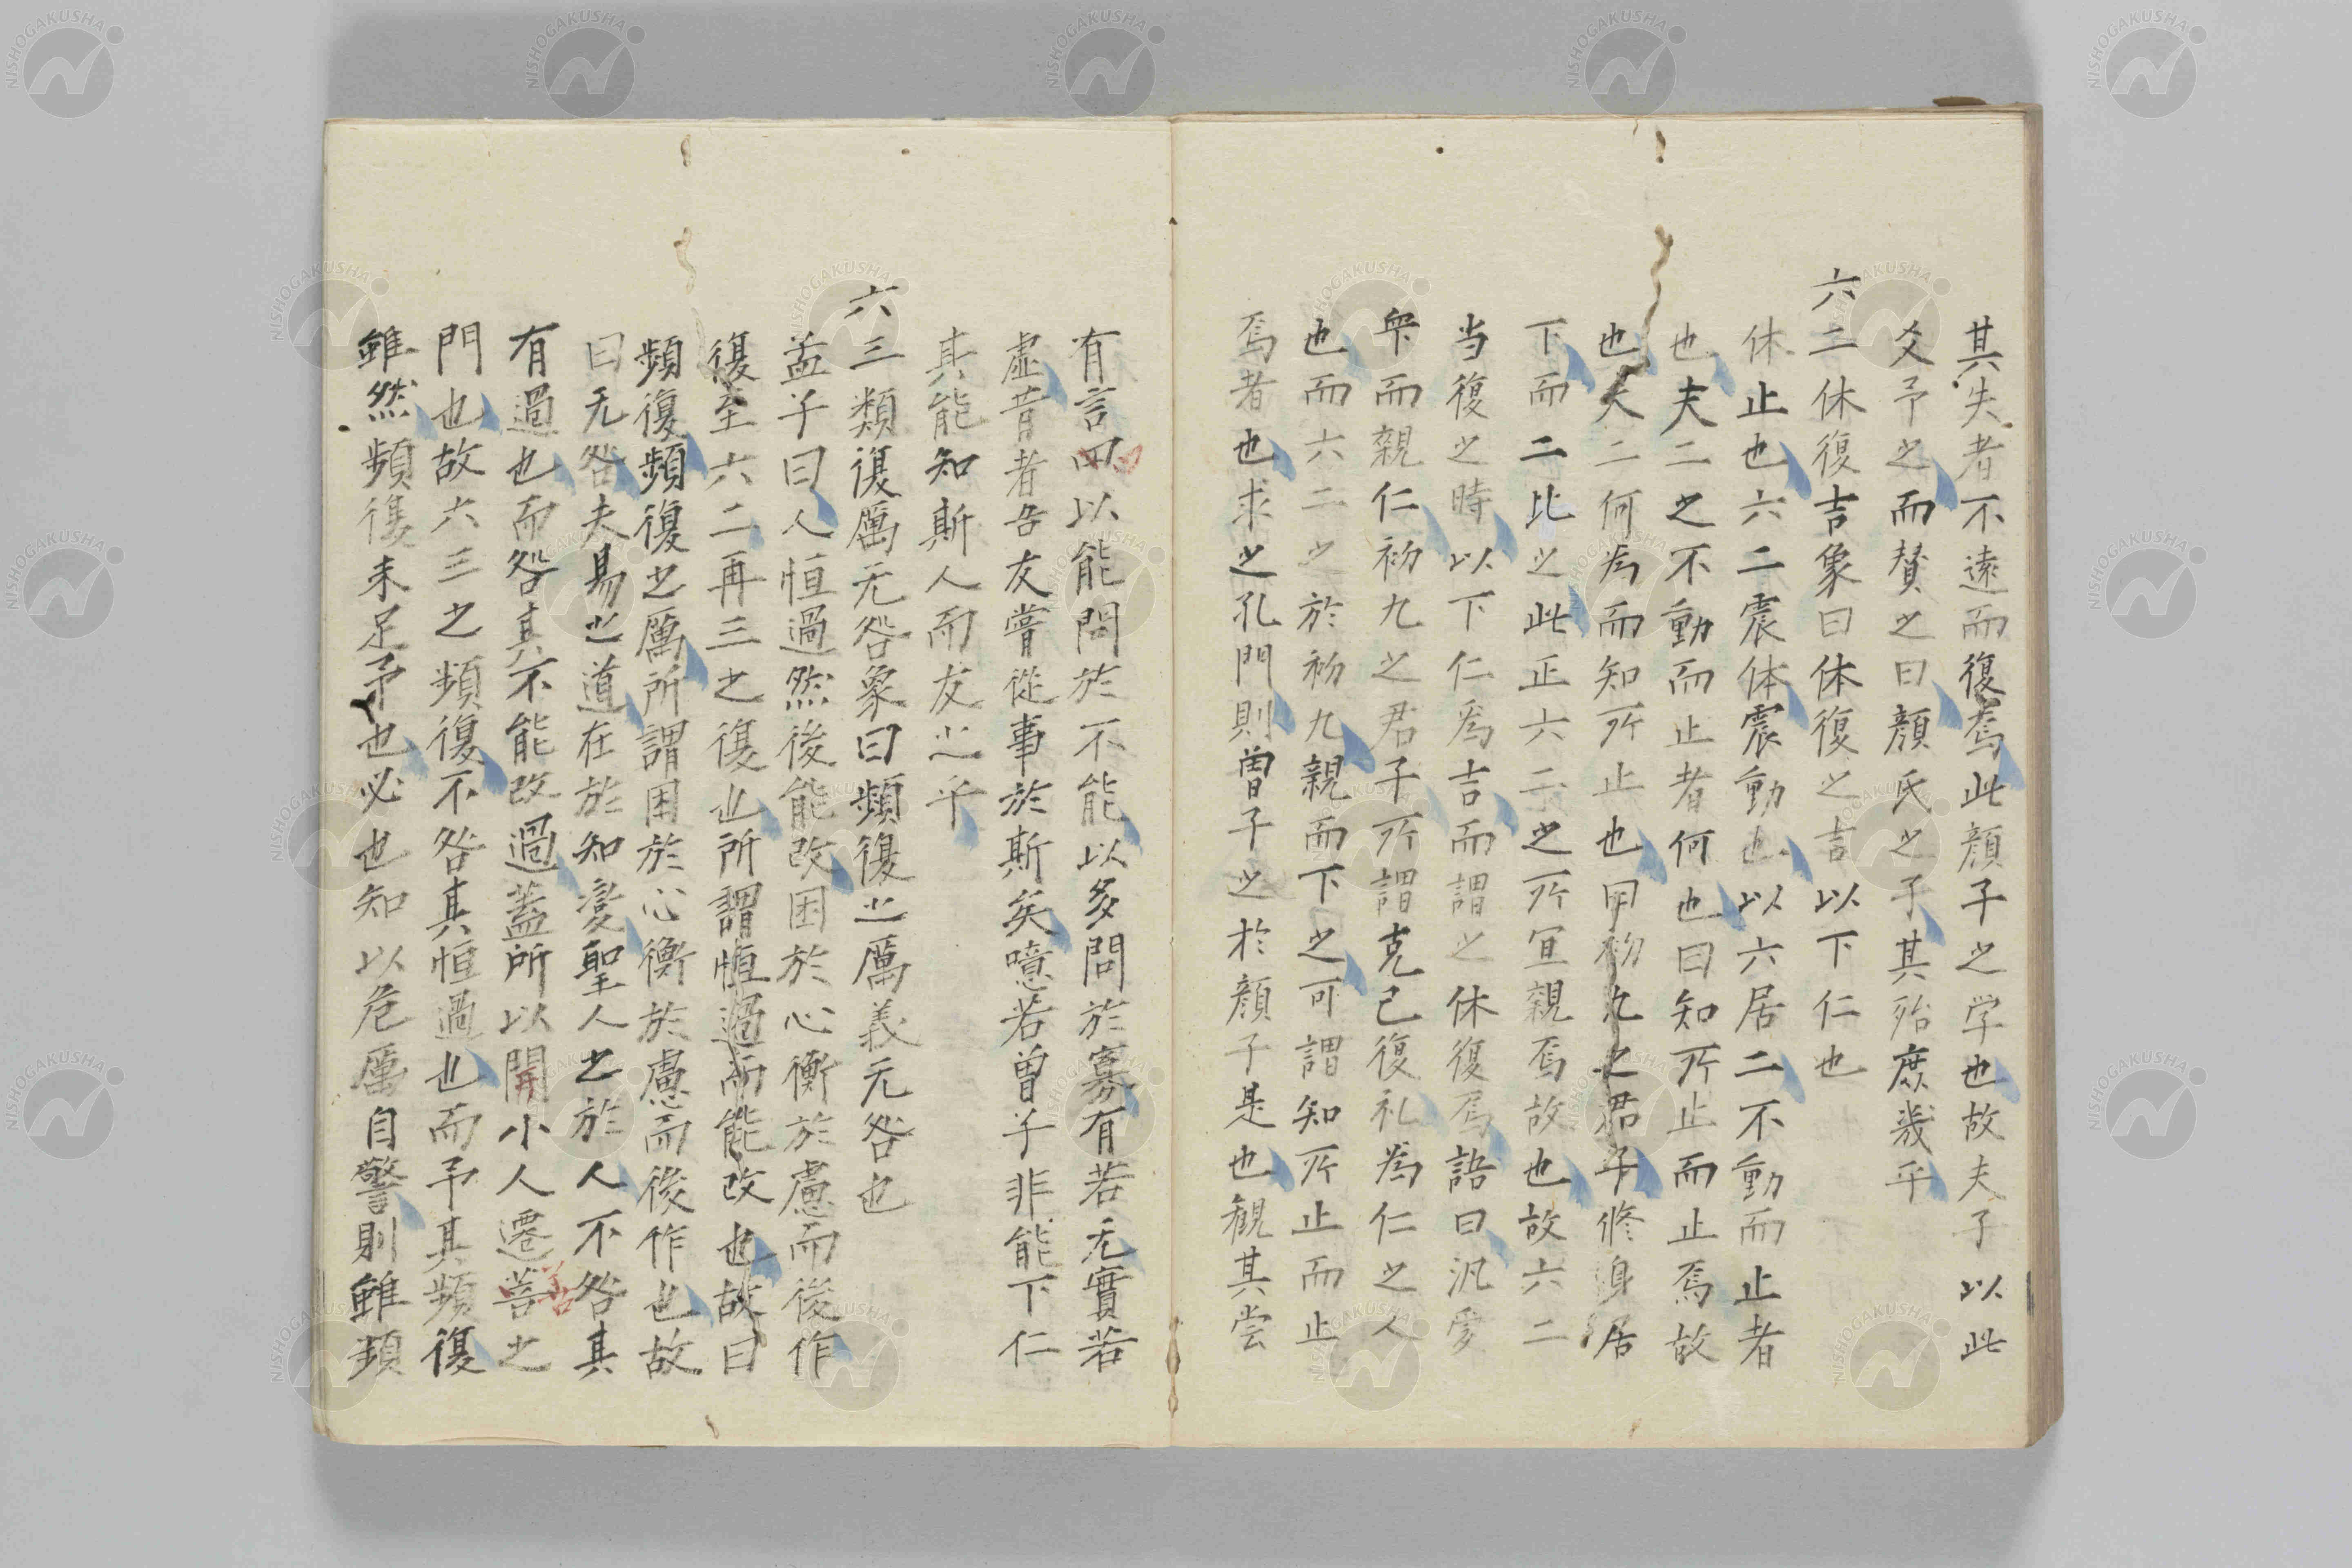 其失者不遠而復焉此顔子之学也故夫子以此
爻予之而賛之曰顔氏之子其殆庶幾乎
六二休復吉象曰休復之吉以下仁也
休止也六二震体震動也以六居二不動而止者
也夫二之不動而止者何也曰知所止而止焉故
也夫二何為而知所止也曰初九之君子修身居
下而二比之此正六二之所宜親焉故也故六二
当復之時以下仁為吉而謂之休復焉語曰汎愛
衆而親仁初九之君子所謂克己復礼為仁之人
也而六二之於初九親而下之可謂知所止而止
焉者也求之孔門則曽子之於顔子是也観其嘗
有言曰以能問於不能以多問於寡有若无實若
虚昔者吾友嘗從事於斯矣噫若曽子非能下仁
其能知斯人而友之乎
六三類復厲无咎象曰頻復之厲義无咎也
孟子曰人恒過然後能改困於心衡於慮而後作
復至六二再三之復也所謂恒過而能改也故曰
頻復頻復之厲所謂困於心衡於慮而後作也故
曰无咎夫易之道在於知変聖人之於人不咎其
有過也而咎其不能改過蓋所以開小人遷善之
門也故六三之頻復不咎其恒過也而予其頻復
雖然頻復未足予也必也知以危厲自警則雖頻
NISHOGAKUSHA